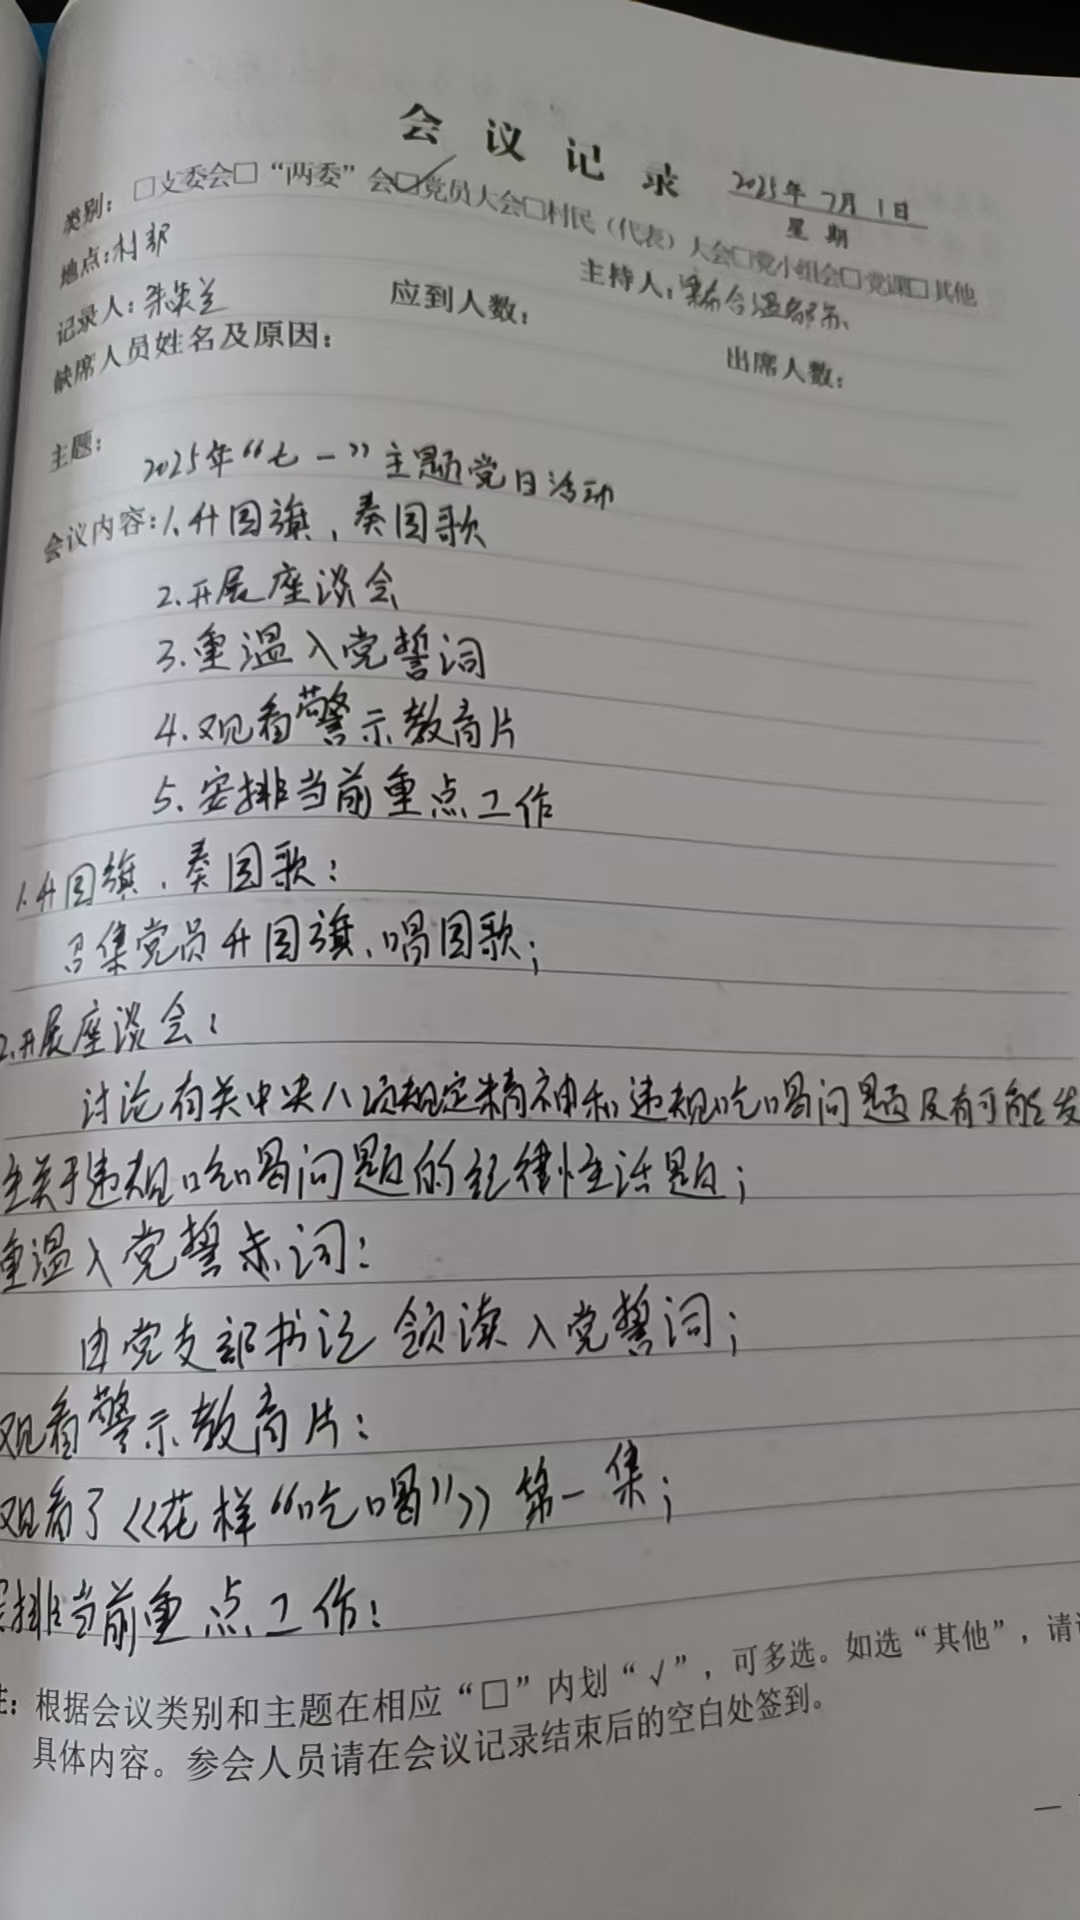 会议记录
2025年7月1日
星期
类别：□支委会□“两委”会☑党员大会□村民（代表）大会□党小组会□党课□其他
地点：村部
主持人：
记录人：朱
应到人数：
出席人数：
缺席人员姓名及原因：
主题：2025年“七一”主题党日活动
会议内容：1.升国旗、奏国歌
2.开展座谈会
3.重温入党誓词
4.观看警示教育片
5.安排当前重点工作
1.升国旗、奏国歌：
召集党员升国旗、唱国歌；
2.开展座谈会：
讨论有关中央八项规定精神和违规吃喝问题及有可能发
生关于违规吃喝问题的纪律性话题；
重温入党誓词：
由党支部书记领读入党誓词；
观看警示教育片：
观看了《花样“吃喝”》第一集；
排当前重点工作：
注：根据会议类别和主题在相应“□”内划“√”，可多选。如选“其他”，请
具体内容。参会人员请在会议记录结束后的空白处签到。